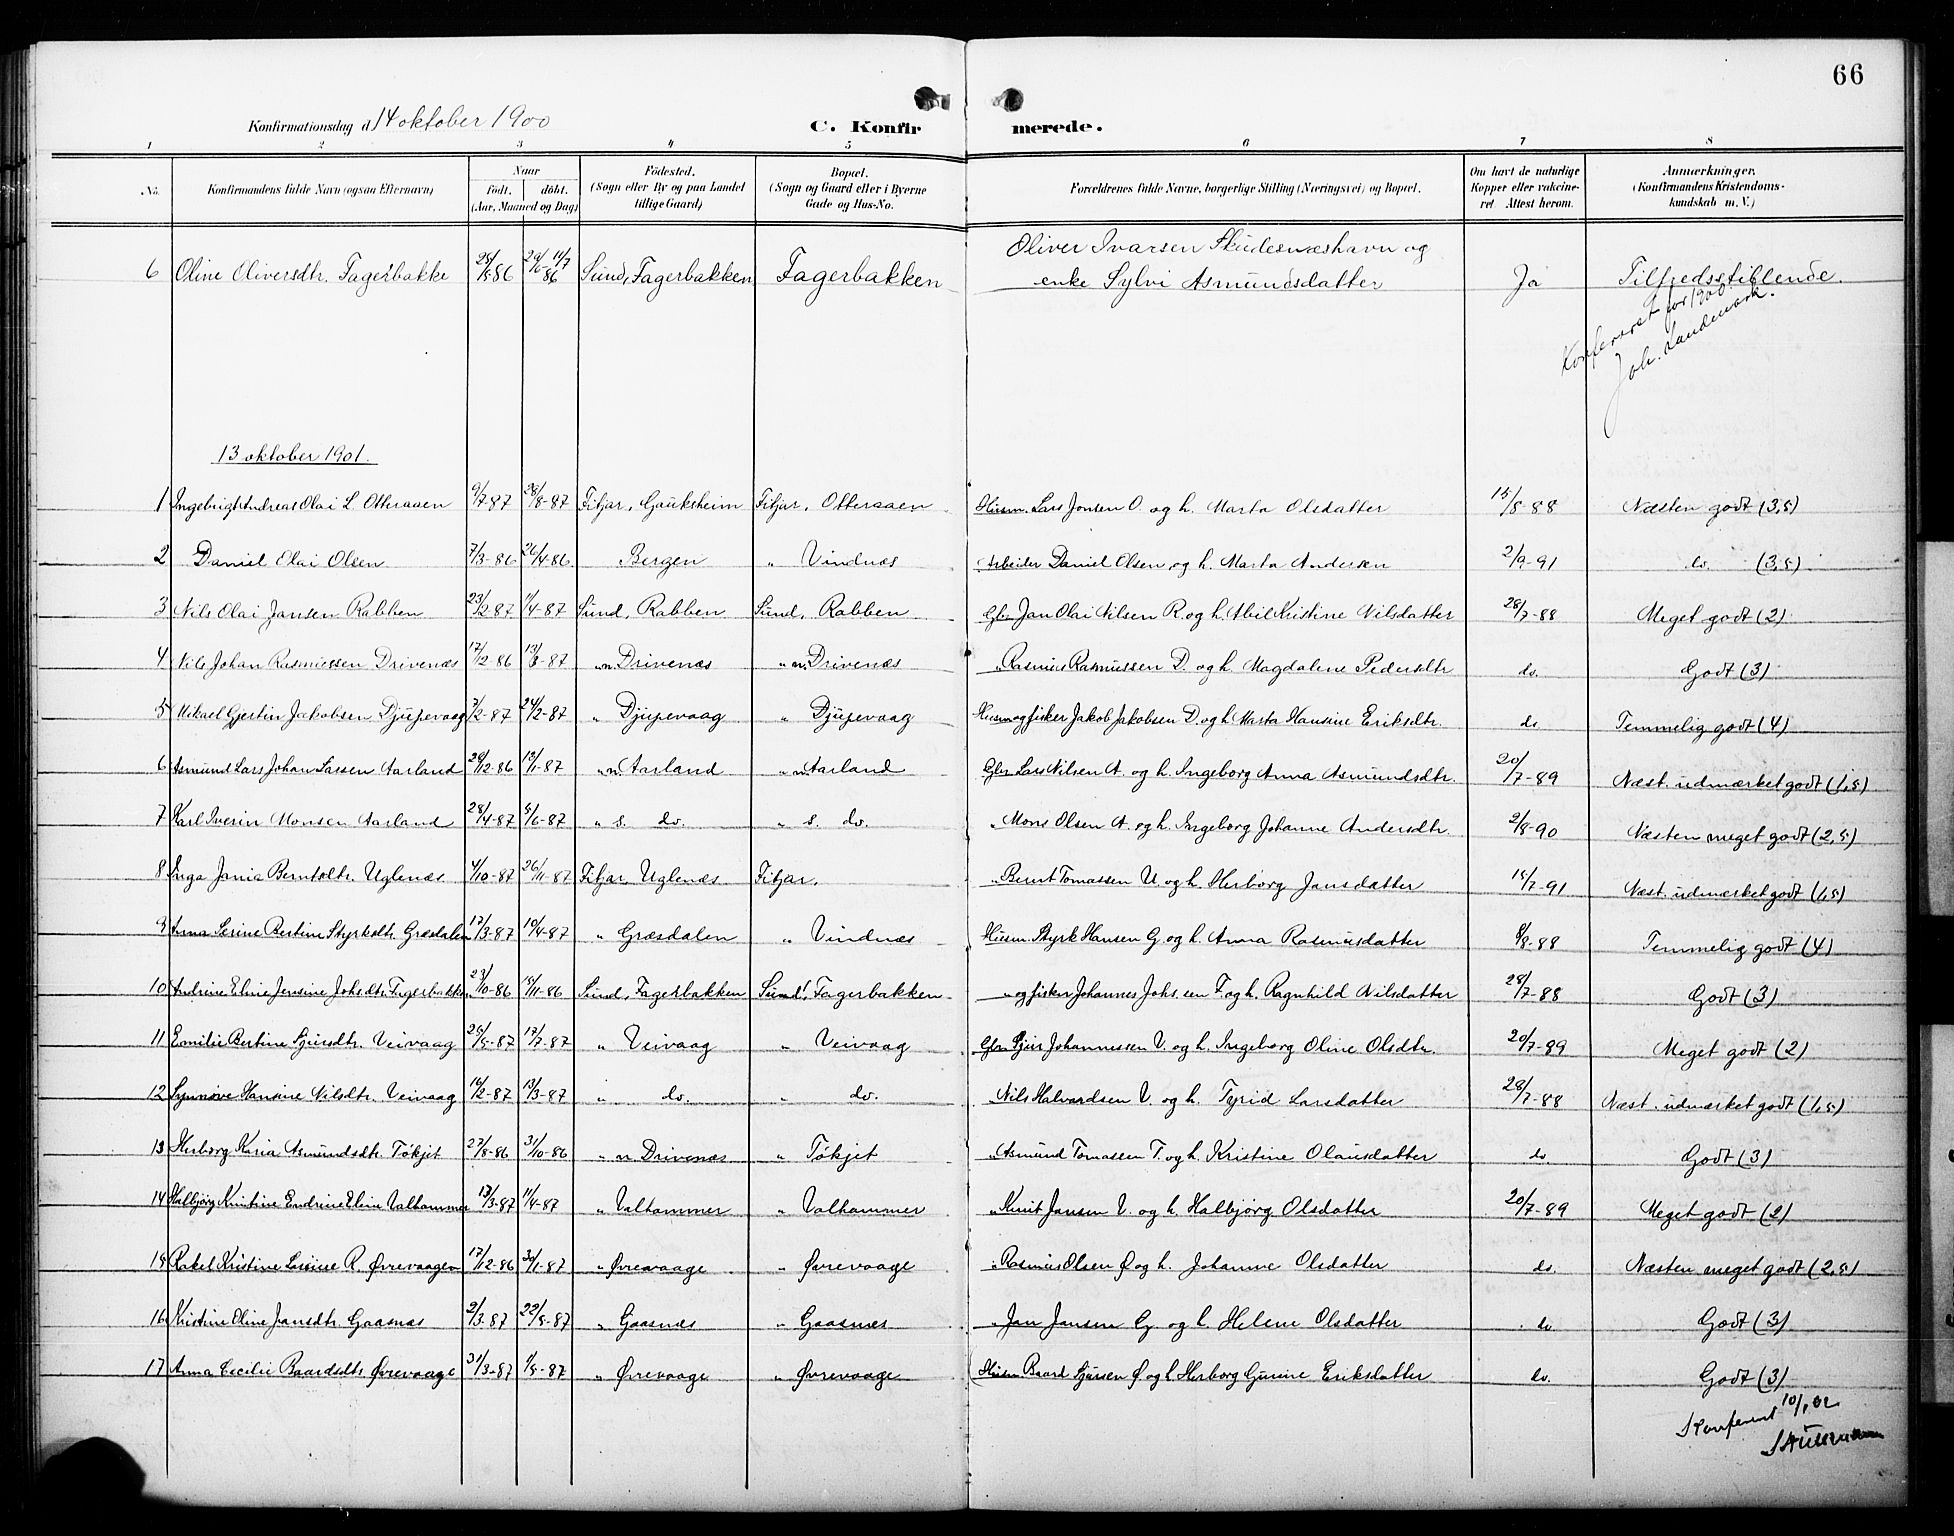 66
Konfirmationsdag d 14 oktober 1900 C. Konfirmerede.
1 2 3 4 5 6 7 8
No. Konfirmandens fulde Navn (ogsaa Efternavn) Naar født. døbt. (Aar, Maaned og Dag) Fødested. (Sogn eller By og paa Landet tillige Gaard) Bopæl. (Sogn og Gaard eller i Byerne Gade og Hus-No. Forældrenes fulde Navne, borgerlige Stilling (Næringsvei) og Bopæl. Om havt de naturlige Kopper eller vakcineret Attest herom. Anmærkninger. (Konfirmandens Kristendomskundskab m. V.)
6 Oline Oliversdtr. Fagerbakke Sund, Fagerbakken Fagerbakken Oliver Ivarsen Skudesnæshavn og enke Sylvi Asmundsdatter Ja Tilfredsstillende.
Konfereret for 1900
Joh. Landmark.
13 oktober 1901.
1 Ingebrigt Andreas Olai L. Otteraaen 9/7-87 28/8-87 Fitjar, Gauksheim Fitjar, Otteraaen Husm. Lars Jonsen O. og h. Marta Olsdatter 15/8-88 Næsten godt (3,5)
2 Daniel Olai Olsen 7/3-86 26/4-86 Bergen " Vindnæs Arbeider Daniel Olsen og h. Marta Andersen 2/9-91 do. (3,5)
3 Nils Olai Jansen Rabben 23/2-87 11/4-87 Sund, Rabben Sund, Rabben Gbr. Jan Olai Nilsen R. og h. Abil Kristine Nilsdatter 28/7-88 Meget godt (2)
4 Nils Johan Rasmussen Drivenæs 17/12-86 " n. Drivenæs " n. Drivenæs " Rasmus Rasmussen D. og h. Magdalene Pedersdtr do. Godt (3)
5 Mikael Gjertin Jakobsen Djupevaag 7/2-87 24/2-87 " Djupevaag " Djupevaag Husm og fisker Jakob Jakobsen D. og h. Marta Hansine Eriksdtr. do Temmelig godt (4)
6 Asmund Lars Johan Larsen Aarland " n. Aarland " n. Aarland Gbr. Lars Nilsen A. og h. Ingeborg Anna Asmundsdtr. 20/7-89 Næst. udmærket godt (1,5)
7 Karl Iverin Monsen Aarland 28/4-87 5/6-87 " s. do. " s. do. " Mons Olsen A. og h. Ingeborg Johanne Andersdtr 2/8-90 Næsten meget godt (2,5)
8 Inga Jania Berntsdtr. Uglenæs 4/10-87 26/11-87 Fitjar, Uglenæs Fitjar. " Bernt Tomassen U. og h. Herborg Jansdatter 15/7-91 Næst. udmærket godt (1,5)
9 Anna Serine Bertine Styrksdtr. Græsdalen 17/3-87 10/4-87 " Græsdalen " Vindnæs Husm. Styrk Hansen G. og h. Anna Rasmusdatter 8/8-88 Temmelig godt (4)
10 Andrine Eline Jensine Johsdtr. Fagerbakken 23/10-86 Sund, Fagerbakken Sund, Fagerbakken " og fisker Johannes Johs.en F. og h. Ragnhild Nilsdatter 28/7-88 Godt (3)
11 Emilie Bertine Sjursdtr. Veivaag 25/5-87 17/7-87 " Veivaag " Veivaag Gbr. Sjur Johannessen V. og h. Ingeborg Oline Olsdtr. 20/7-89 Meget godt (2)
12 Synnøve Hansine Nilsdtr. Veivaag 16/2-87 13/3-87 " do. " do. " Nils Halvardsen V. og h. Tyrid Larsdatter 28/7-88 Næst. udmærket godt (1,5)
13 Herborg Karia Asmundsdtr. Tøkjet 27/8-86 31/10-86 " n. Drivenæs " Tøkjet " Asmund Tomassen T. og h. Kristine Olausdatter do. Godt (3)
14 Halbjørg Kristine Endrine Eline Valhammer 13/3-87 11/4-87 " Valhammer " Valhammer " Knut Jansen V. og h. Halbjørg Olsdatter 20/7-89 Meget godt (2)
15 Rakel Kristine Lovise R. Øvrevaagen 17/12-86 30/1-87 " Øvrevaage " Øvrevaage " Rasmus Olsen Ø og h. Johanne Olsdatter do. Næsten meget godt (2,5)
16 Kristine Oline Jansdtr. Gaasnæs 2/3-87 22/5-87 " Gaasnæs " Gaasnæs " Jan Jansen G. og h. Helene Olsdatter do Godt (3)
17 Anna Cecilie Baardsdtr. Øvrevaage 31/3-87 1/5-87 " Øvrevaage " Øvrevaage Husm Baard Sjursen Ø og h. Herborg Gurine Eriksdatter do. Godt (3)
Konferert 10/1 02